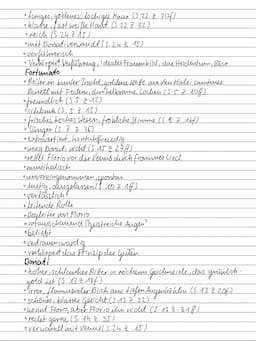 • langes, goldenes, lockiges Haar (S. 22 Z. 20f)
• blasse, fast weiße Haut (S. 22 Z. 32)
• reich (S. 24 Z. 15)
• mit Donati verwandt (S. 24 Z. 15)
• verführerisch
• verkörpert Verführung, ideales Frauenbild, das Heidentum, Böse
Fortunato
• Reiter in bunter Tracht, goldene Kette um den Hals, samtenes
Barett mit Federn, dunkelbraune Locken (S. 5 Z. 10ff)
• freundlich (S. 5 Z. 12)
• schlank (S. 5 Z. 15)
• frisches, keckes Wesen, fröhliche Stimme (S. 5 Z. 16f)
• Sänger (S. 7 Z. 36)
• extrovertiert,
• mag Donati nicht (S. 15 Z. 27ff)
• rettet Florio vor der Venus durch frommes Lied
• musikalisch
• unvoreingenommen, spontan
• lustig, ausgelassen (S. 10 Z. 1ff)
• verlässlich
• leitende Rolle
• Begleiter von Florio
• vorausschauend "geistreiche Augen"
• beliebt
• vertrauenswürdig
• verkörpert das Prinzip des Guten
Donati
• hoher, schlanker Ritter in reichem Geschmeide, das grünlich-
gold ist (S. 13 Z. 17f)
• irrer, flammender Blick aus tiefen Augenhöhlen (S. 13 Z. 20f)
• schönes, blasses Gesicht (S. 13 Z. 22)
• kennt Florio, aber Florio ihn nicht (S. 13 Z. 31ff)
• recht gerne (S. 14 Z. 38)
• verwandt mit Venus (S. 24 Z. 15)